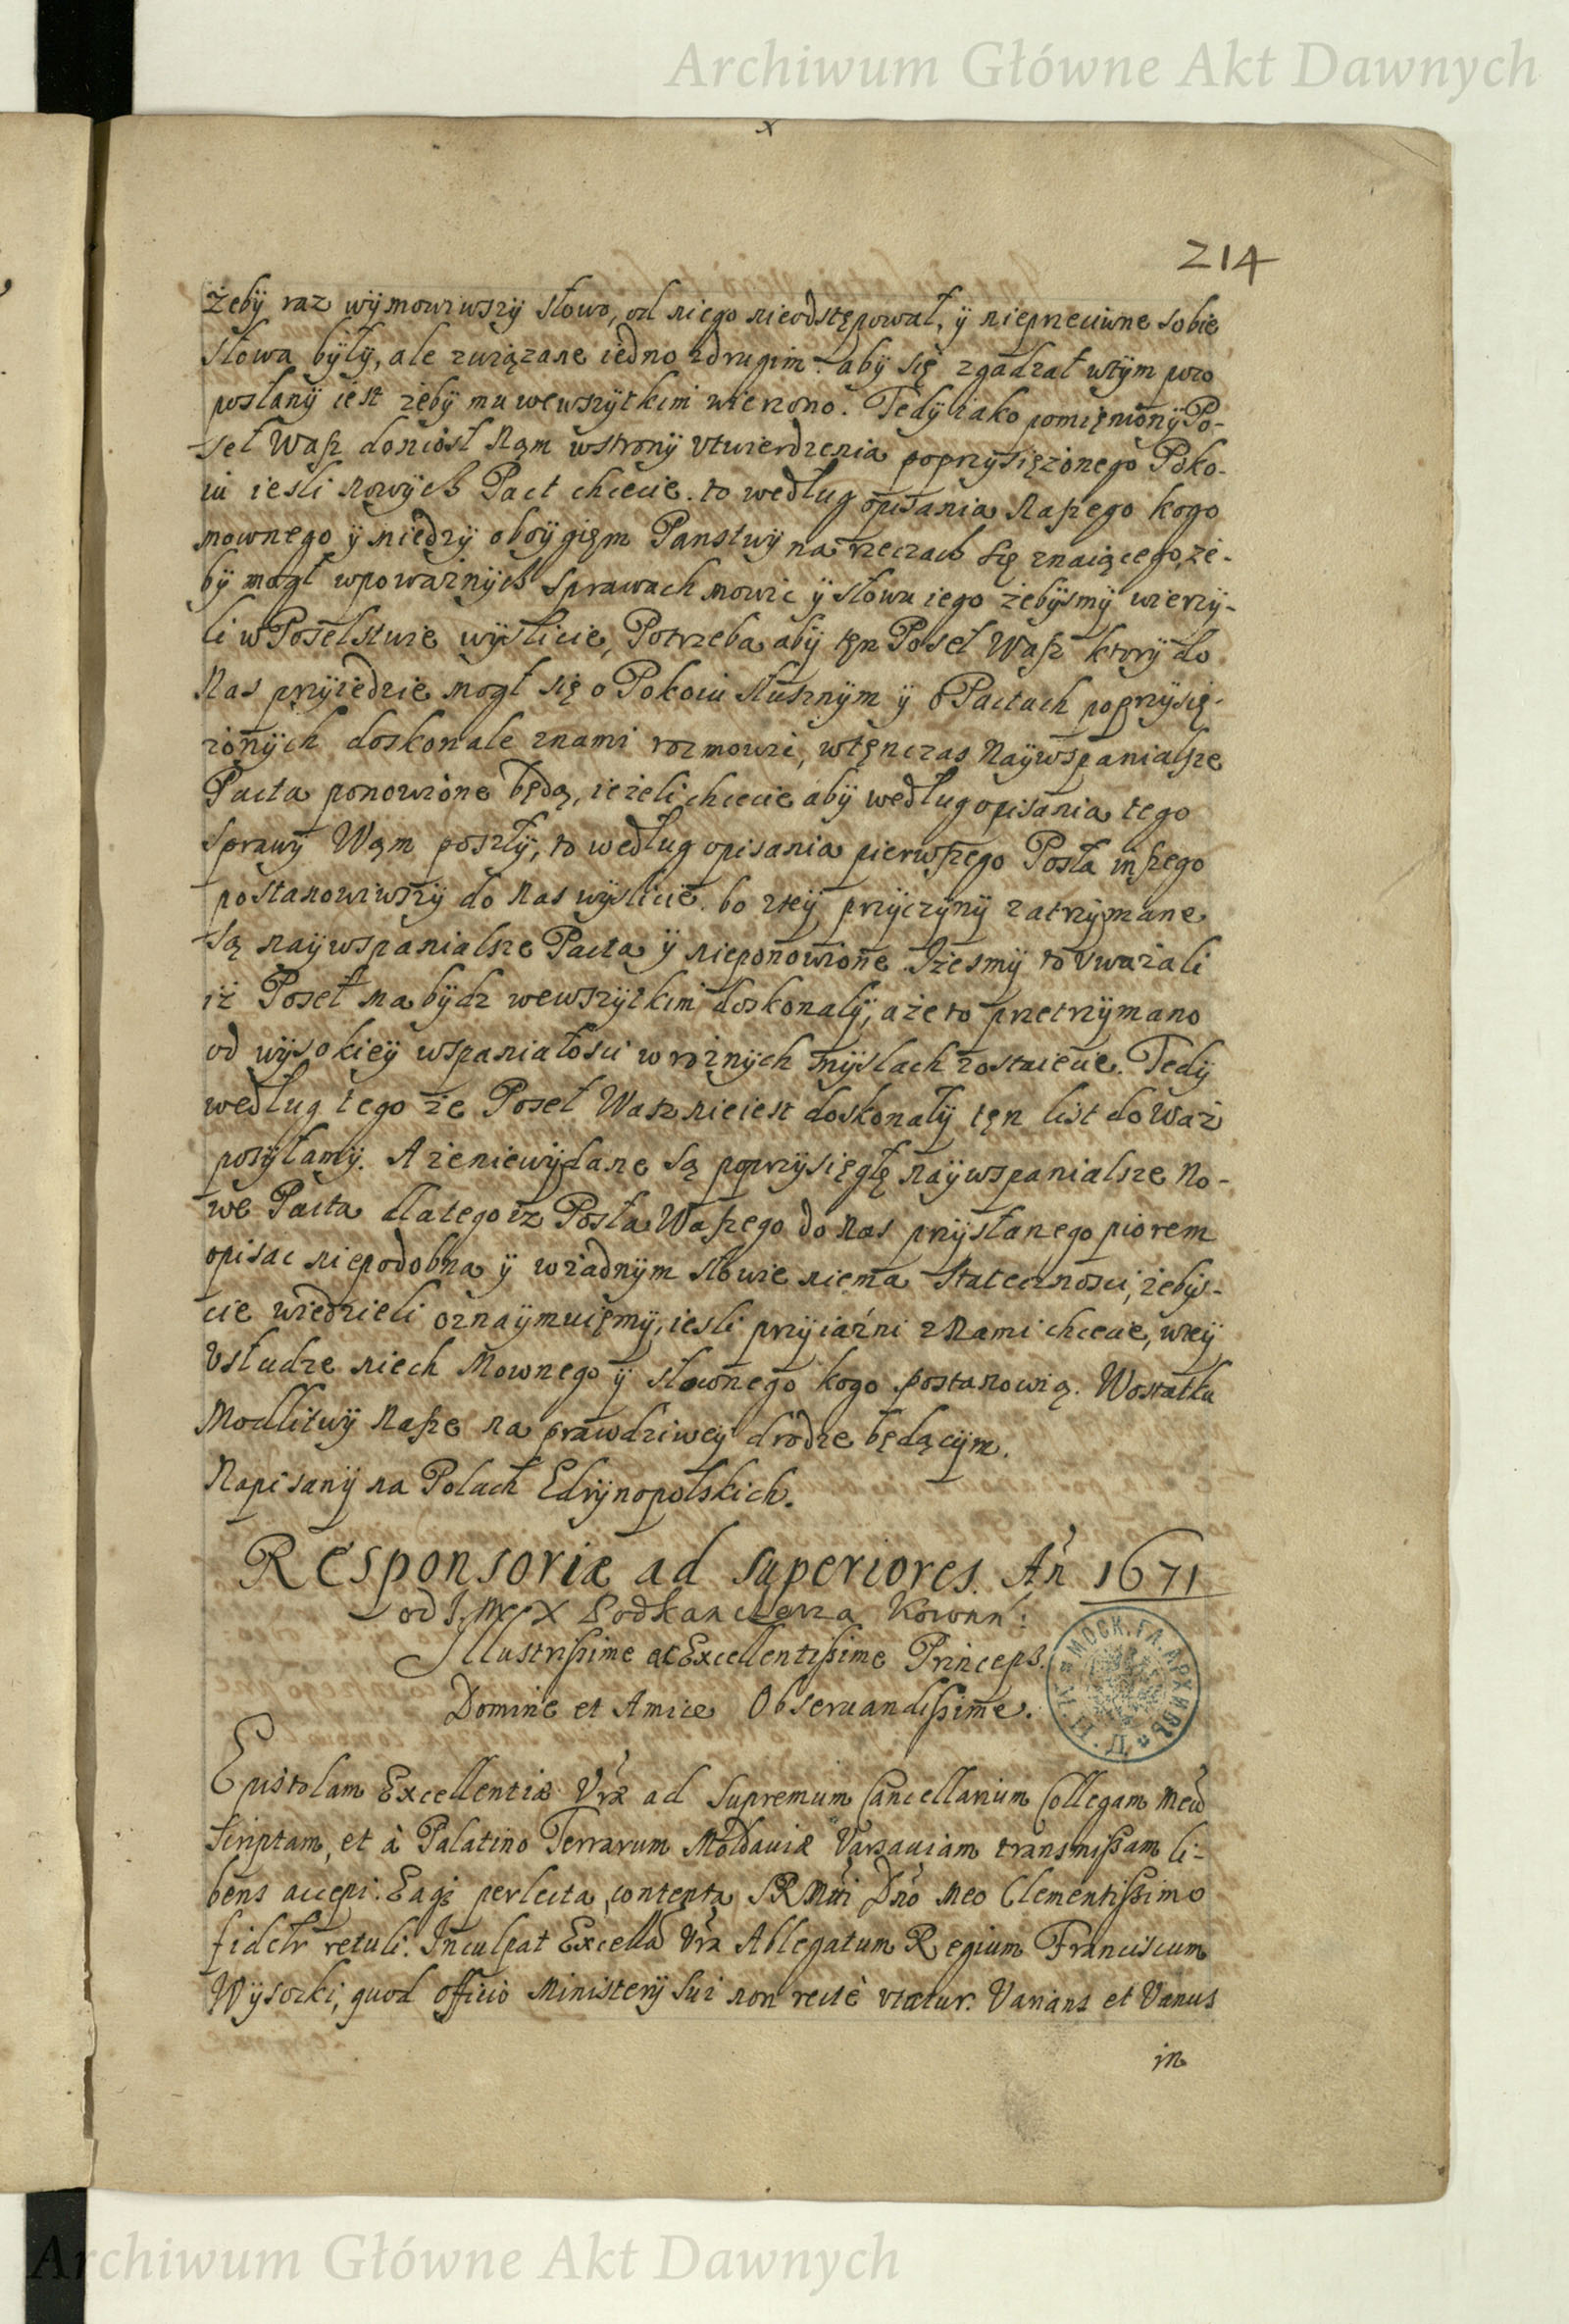 Archiwum Główne Akt Dawnych
x
214
żebÿ raz wÿmowiwszÿ słowo, od niego nieodstępował, ÿ nieprzeciwne sobie
słowa bÿłÿ, ale związane iedno zdrugim. abÿ się zgadzał wtÿm poco
posłanÿ iest żebÿ mu wewszÿtkim wierzono. Tedÿ iako pomięnionÿ Po-
seł Wasz doniosł Nąm wstronÿ utwierdzenia poprzÿsiężonego Poko-
iu iesli nowÿch Pact chcecie. to według opisania Naszego kogo
mownego ÿ międzÿ oboÿgięm Panstwÿ na rzeczach się znaiącego, że-
bÿ mogł wpoważnÿch sprawach mowic ÿ słowu iego żebÿsmÿ wierzÿ-
li w Poselstwie wÿslicie, Potrzeba abÿ tęn Poseł Wasz ktorÿ do
Nas przÿiedzie mogł się o Pokoiu słusznÿm ÿ o Pactach poprzÿsię-
żonÿch doskonale znami rozmowic, wtęnczas Naÿwspanialsze
Pacta ponowione będą, ieżeli chcecie abÿ według opisania tego
sprawÿ Wąm poszłÿ, to według opisania pierwszego Posła inszego
postanowiwszÿ do Nas wÿslicie. bo zteÿ przÿczÿnÿ zatrzÿmane
są naÿwspanialsze Pacta ÿ nieponowione. Iżesmÿ to uważali
iż Poseł ma bÿdz wewszÿtkim doskonałÿ, a że to przetrzÿmano
od wÿsokieÿ wspaniałosci w rożnÿch mÿslach zostaiecie. Tedÿ
według tego że Poseł Wasz nieiest doskonałÿ tęn list do Waz
posÿłamÿ. A że niewÿdane są poprzÿsięgłę naÿwspanialsze No-
we Pacta dlatego iz Posła Waszego do Nas przÿsłanego piorem
opisac niepodobna ÿ wżadnÿm słowie niema statecznosci, żebÿs-
cie wiedzieli oznaÿmuięmÿ, iesli przÿiaźni z Nami chcecie, wteÿ
Usłudze niech Mownego ÿ słownego kogo postanowią. Wostatku
Modlitwÿ Nasze na prawdziweÿ drodze będącÿm.
Napisanÿ na Polach Edrÿnopolskich.
Responsoriæ ad superiores. Añ 1671
od J. Mc X Podkanclerza Koronn:
Illustrissime ac Excellentissime Princeps.
Domine et Amice Observandissime.
Epistolam Excellentiæ Vræ ad Supremum Cancellarium Collegam Meũ
scriptam, et à Palatino Terrarum Moldaviæ Varsaviam transmissam li-
bens accepi. Eaq; perlecta, contenta SRMtti Dño Meo Clementissimo
fidelr retuli. Inculpat Excella Vra Ablegatum Regium Franciscum
Wÿsocki, quod officio Ministerÿ sui non rectè utatur. Varians et Vanus
in
Archiwum Główne Akt Dawnych